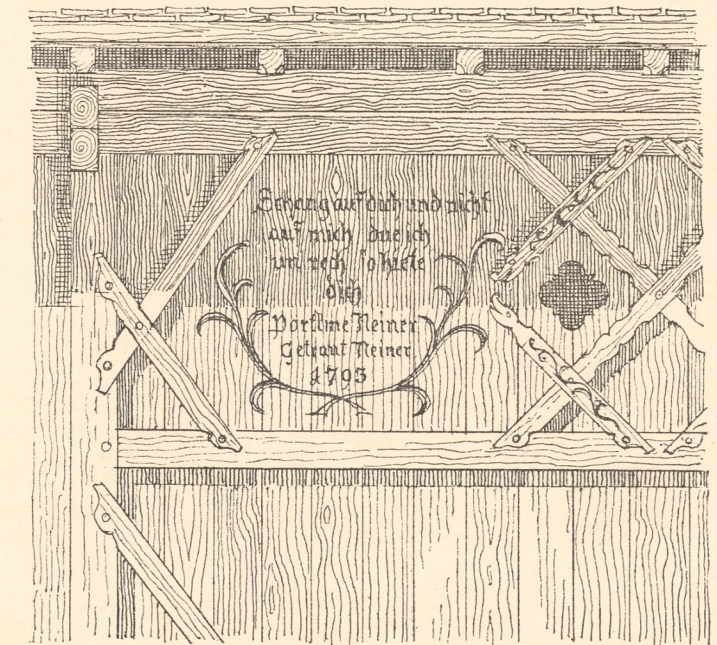 Schang auf dich und nicht
auf mich due ich
un rech so hiete
dich
Getraut Neiner
1793